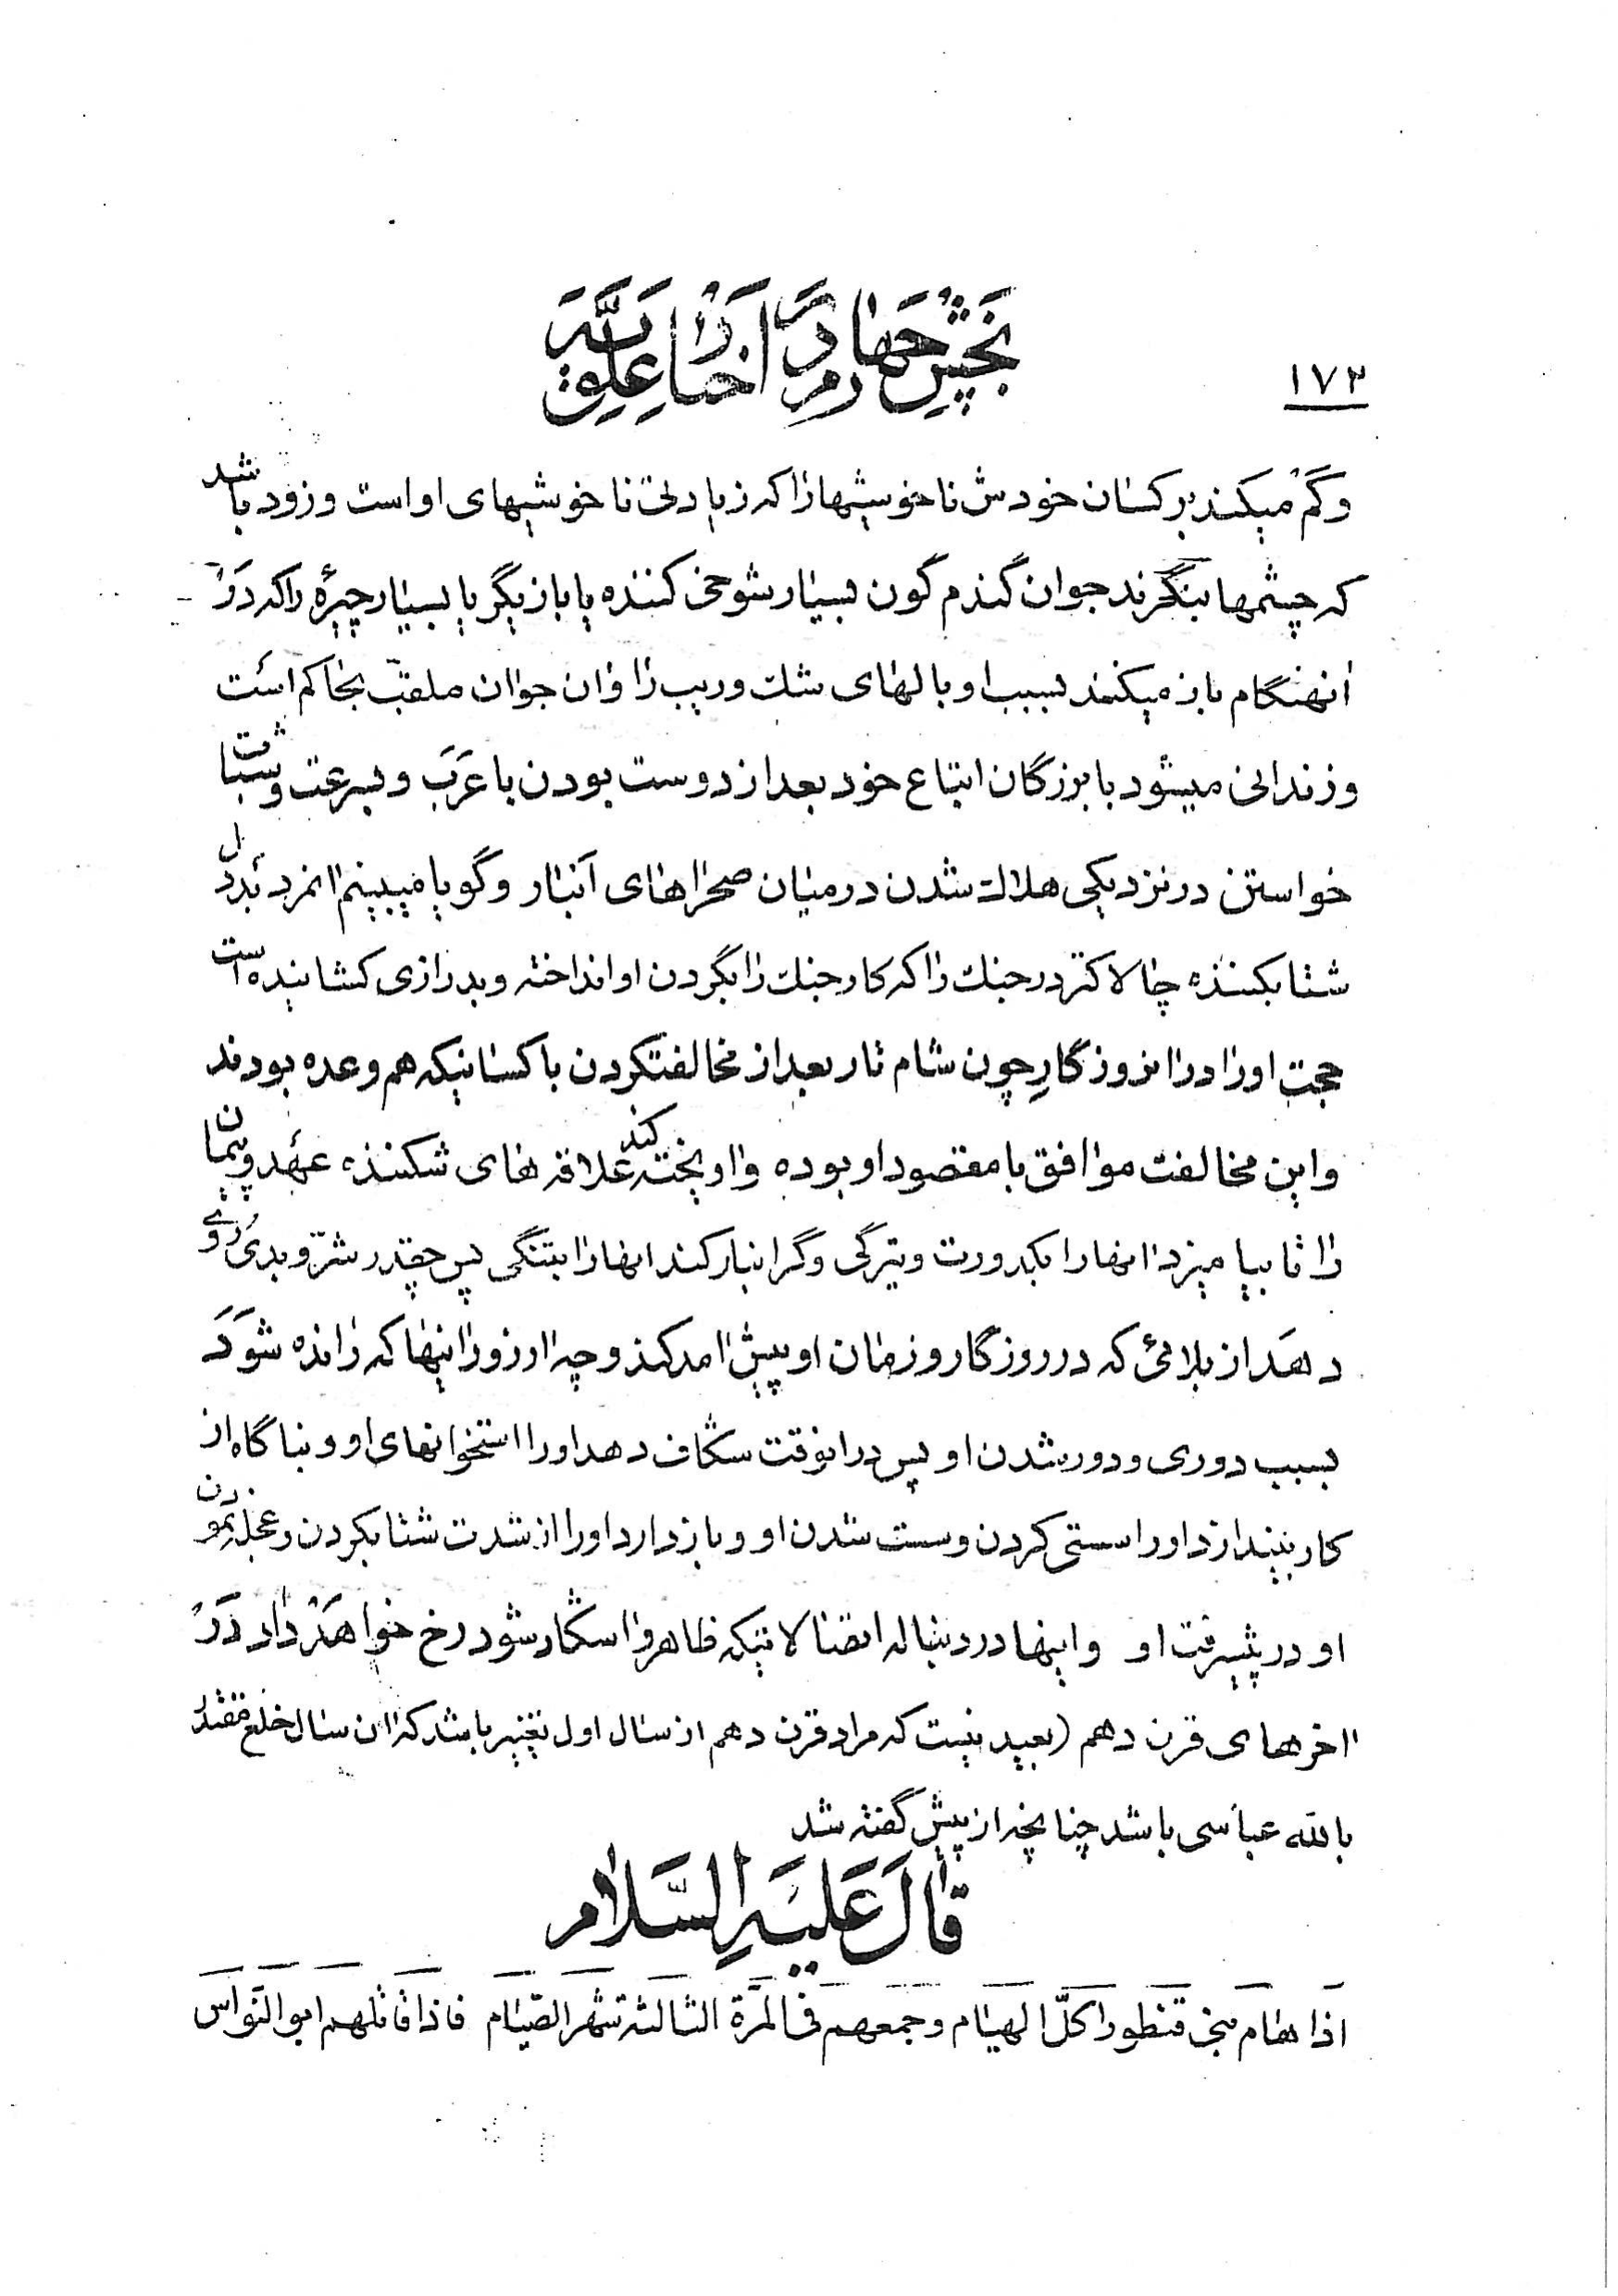 ۱۷۲
بخش چهارم در اخبار علویه
و گم میکند بر کسان خودش ناخوشیها را که زیادتی ناخوشیهای او است و زود باشد
که چشمها بنگرند جوان گندم گون بسیار شوخی کننده یا بازیگر یا بسیار چیره را که در
انهنگام باز میکند بسبب او بالهای شک و ریب را و ان جوان ملقب بحاکم است
و زندانی میشود با بزرگان اتباع خود بعد از دوست بودن با عرب و بسرعت و
خواستن در نزدیکی هلاک شدن در میان صحراهای آنبار و گویا میبینم انمرد
شتابکننده چالاکتر در جنک را که کار جنک را بگردن او انداخته و بدرازی کشانیده است
حجت او را در انروزگار چون شام تار بعد از مخالفتکردن با کسانیکه هم وعده بودند
و این مخالفت موافق با مقصود او بوده و اویخته کند علاقه های شکننده عهد و پیمان
را تا بیامیزد انها را بکدورت و تیرگی و گرانبار کند انها را بتنگی پس چقدر شر و بدی روی
دهد از بلائی که در روزگار و زمان او پیش امد کند و چه ارزوز اینها که رانده شود
بسبب دوری و دور شدن او پس در انوقت شکاف دهد او را استخوانهای او و بنا گاه از
کار بیندازد او را سستی کردن و سست شدن او و باز دارد او را از شدت شتابکردن و عجله نمودن
او در پیشرفت او و اینها در دنباله اتصالاتیکه ظاهر و اشکار شود رخ خواهد داد در
اخرهای قرن دهم (بعید نیست که مراد قرن دهم از سال اول تغییر باشد که ان سال خلع مقتدر
بالله عباسی باشد چنانچه از پیش گفته شد
قال علیه السلام
اذا هام بنی قنطورا کل الهیام و جمعهم فی المرة الثالثة شهر الصیام فاذا قاتلهم ابو النواس